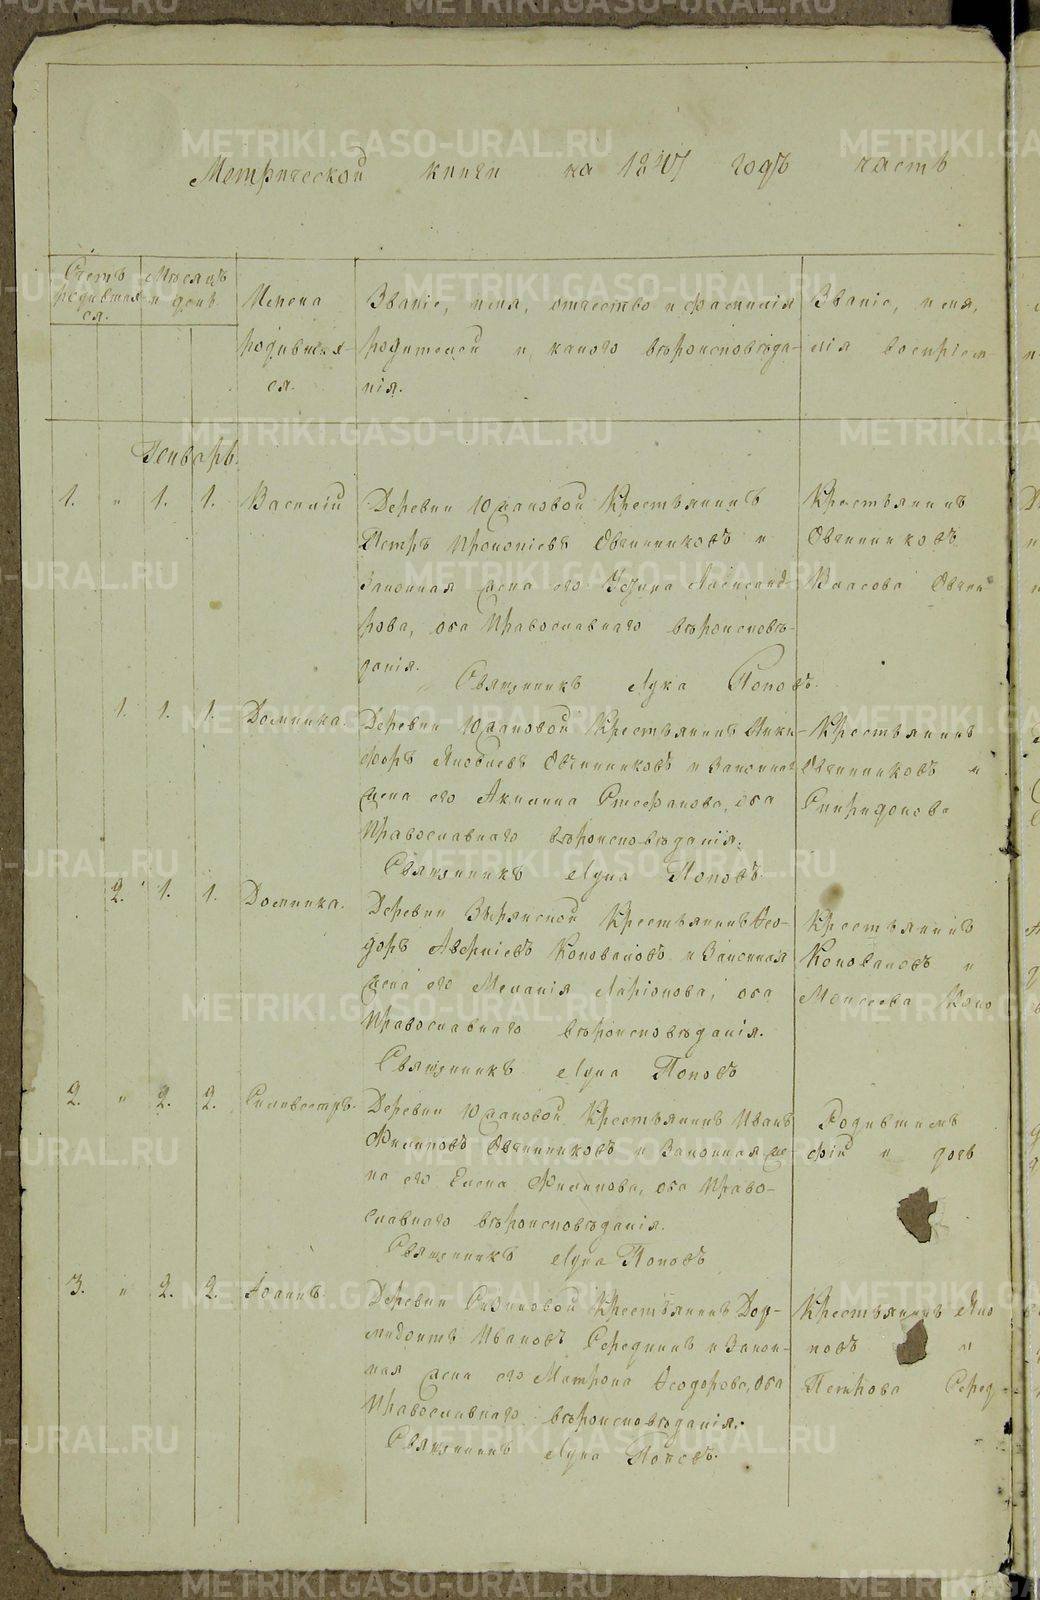 Метрической книги на 1847 годъ часть
Счетъ родившая-ся.
Мѣсяцъ и день
Имена родившая-ся.
Званіе, имя, отчество и фамилія родителей и, какого вѣроисповѣда-нія.
Званіе, имя,
лія воспріем-
Генварь.
1. " 1. 1. Василій
Деревни Юдановой Крестьянинъ
Петръ Прокопіевъ Овчинниковъ и
Законная жена его Александ-
рова, оба Православнаго вѣроисповѣ-
данія.
Священникъ Лука Поповъ.
Крестьянинъ
Овчинниковъ
Власова Овчин
1. 1. 1. Домника.
Деревни Юдановой Крестьянинъ Ники-
форъ Яковлевъ Овчинниковъ и Законная
жена его Акилина Стефанова, оба
Православнаго вѣроисповѣданія.
Священникъ Лука Поповъ.
Крестьянинъ
Овчинниковъ и
Спиридонова
2. 1. 1. Домника.
Деревни Зырянской Крестьянинъ Ѳео-
доръ Аверкіевъ Коноваловъ и Законная
жена его Меланія Ларіонова, оба
Православнаго вѣроисповѣданія.
Священникъ Лука Поповъ
Крестьянинъ
Коноваловъ и
Моисеева Коно
2. " 2. 2. Силивестръ.
Деревни Юдановой Крестьянинъ Иванъ
Филиповъ Овчинниковъ и Законная же-
на его Елена Филипова, оба Право-
славнаго вѣроисповѣданія.
Священникъ Лука Поповъ
Родившимъ
фій и дочь
3. " 2. 2. Іоаннъ.
Деревни Крестьянинъ Дор-
мидонтъ Ивановъ Серединъ и Закон-
ная жена его Матрона Ѳеодорова, оба
Православнаго вѣроисповѣданія.
Священникъ Лука Поповъ.
Крестьянинъ Яко
новъ и
Петрова Серед-
METRIKI.GASO-URAL.RU